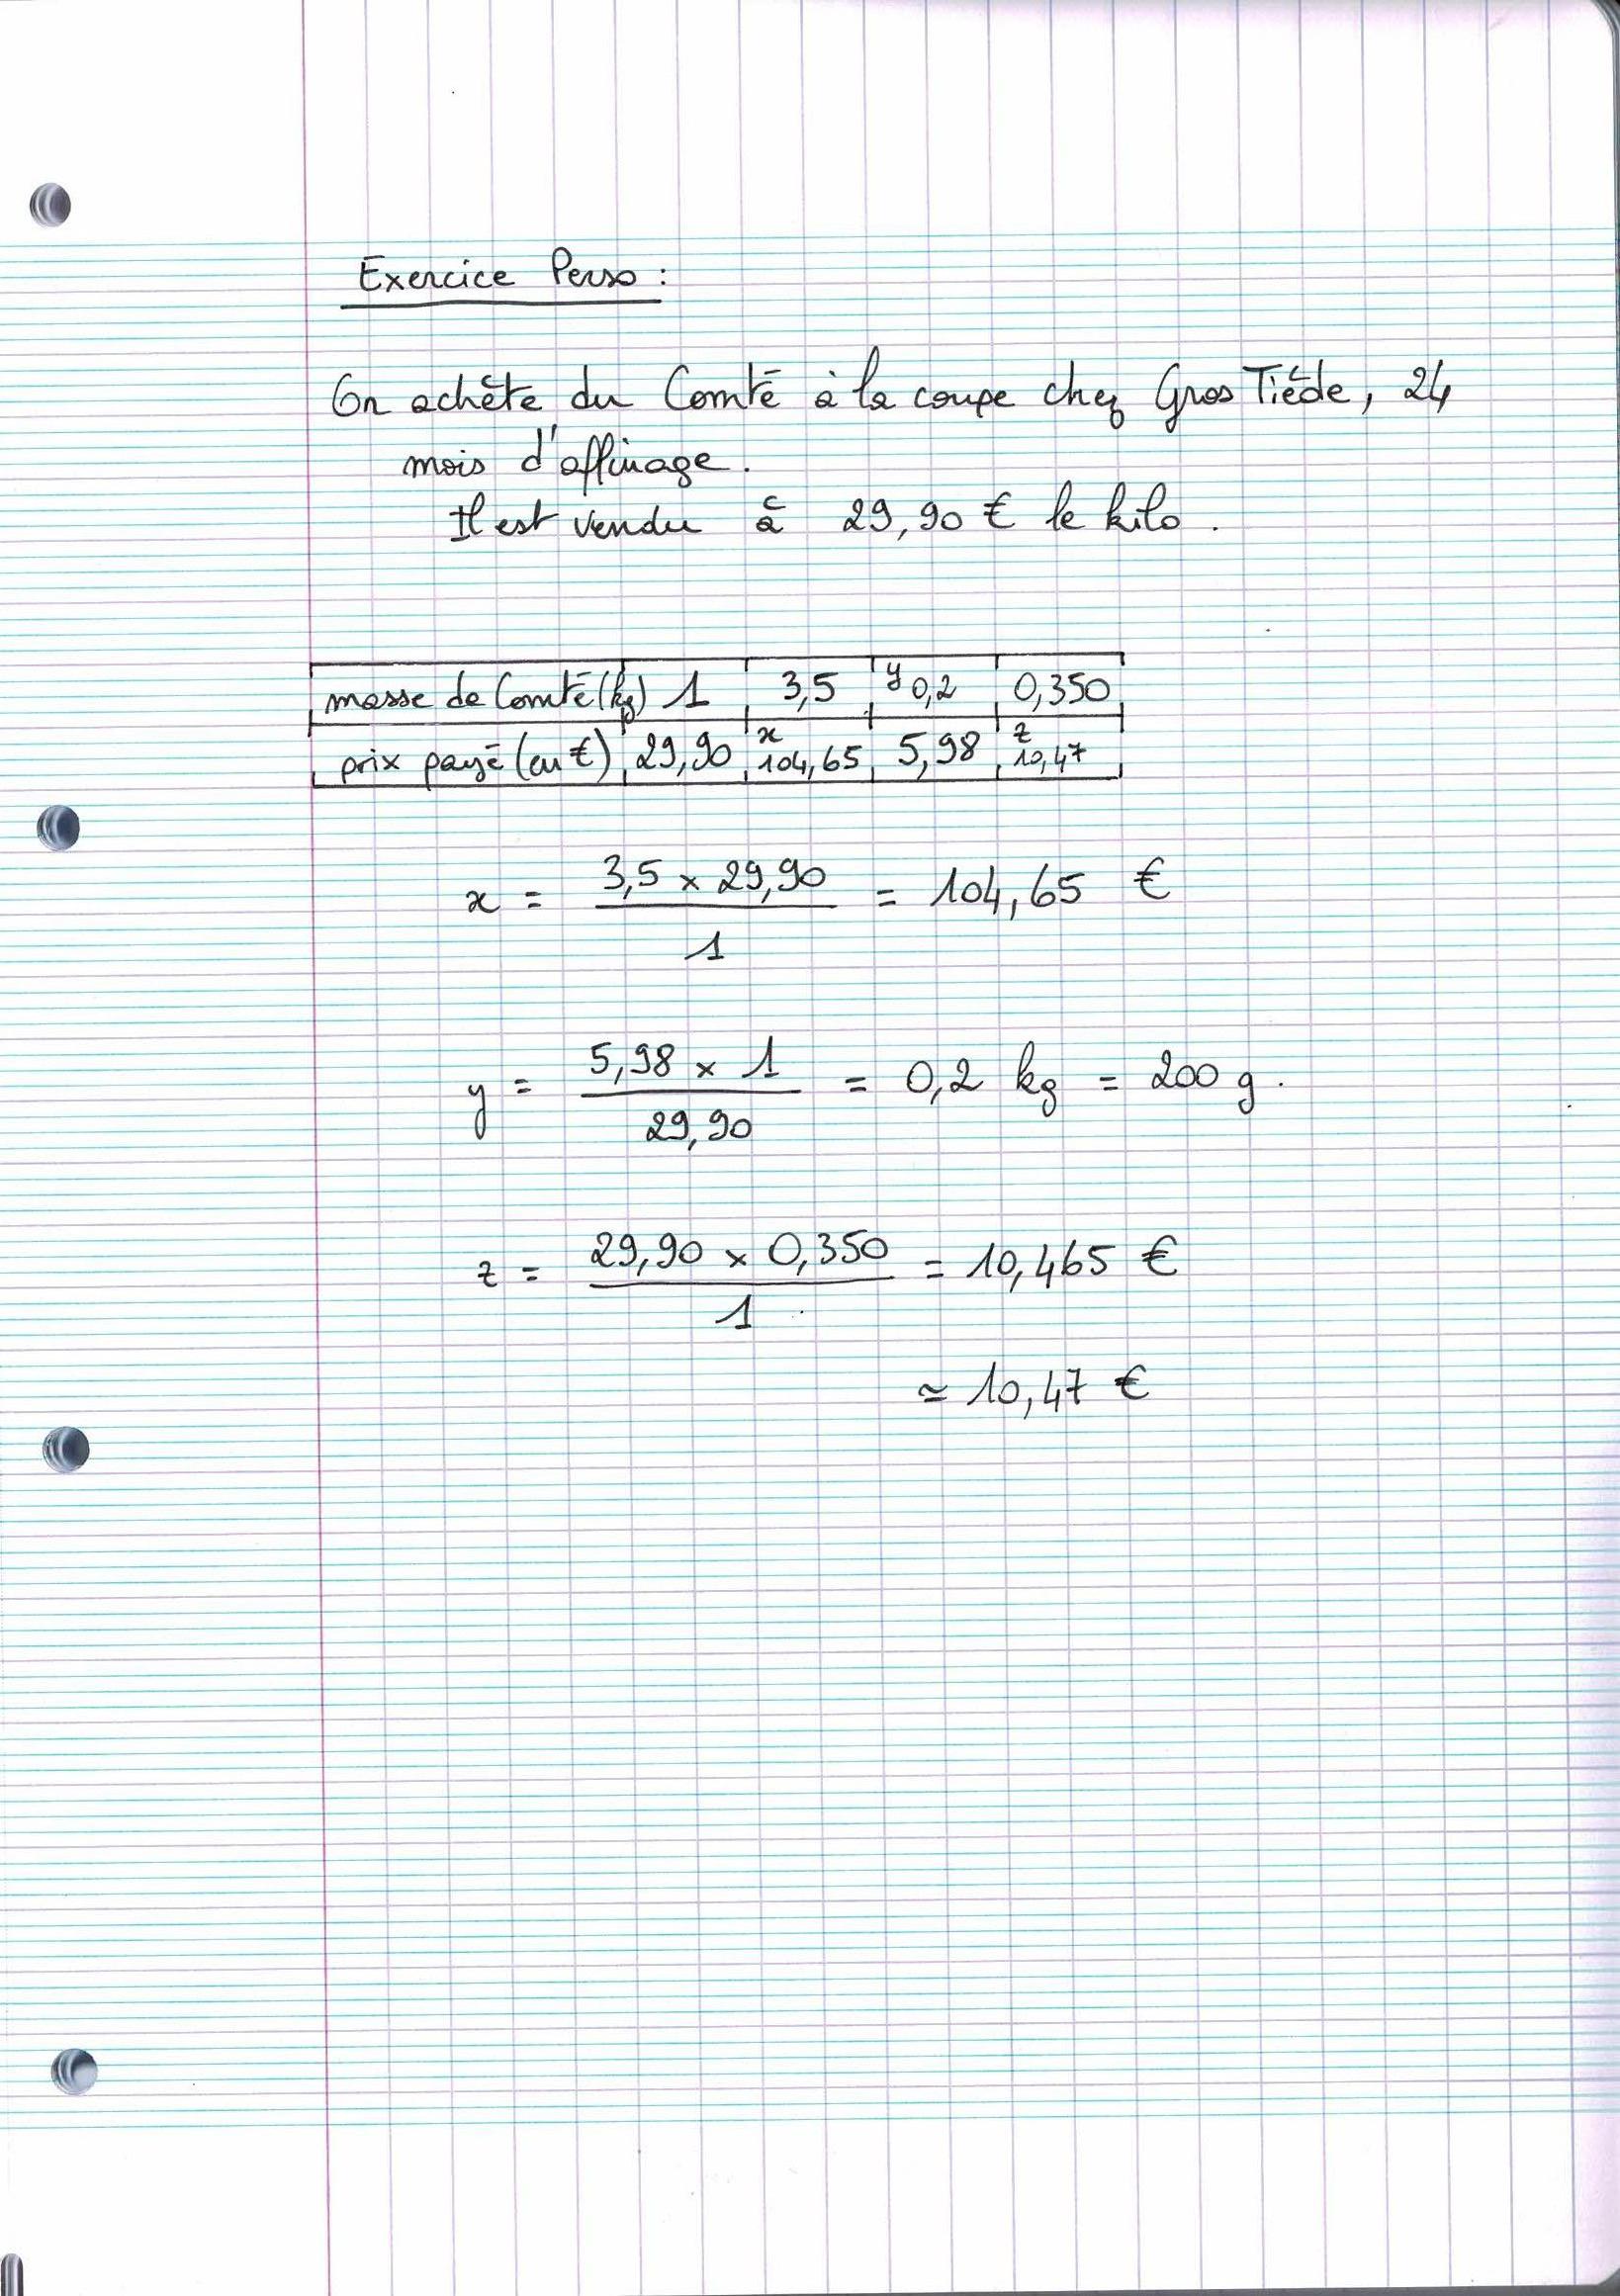 Exercice Perso :
On achète du Comté à la coupe chez Gros Tiède, 24
mois d'affinage.
Il est vendu à 29,90 € le kilo.
masse de Comté (kg) 1 3,5 y 0,2 0,350
prix payé (en €) 29,90 x 104,65 5,98 z 10,47
x = 3,5 × 29,90 / 1 = 104,65 €
y = 5,98 × 1 / 29,90 = 0,2 kg = 200 g.
z = 29,90 × 0,350 / 1 = 10,465 €
≃ 10,47 €